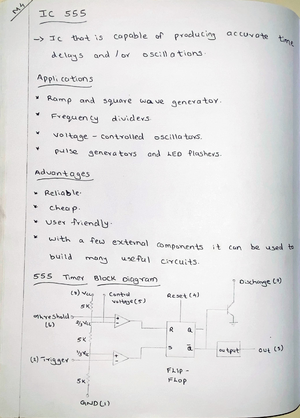 IC 555
→ Ic that is capable of producing accurate time
delays and/or oscillations.
Applications
* Ramp and square wave generator.
* Frequency dividers.
* voltage-controlled oscillators.
* pulse generators and LED flashers.
Advantages
* Reliable.
* cheap.
* User friendly.
* with a few external components it can be used to
build many useful circuits.
555 Timer Block Diagram
Discharge (7)
(8) Vcc
Control
voltage (5)
Reset (4)
5K
threshold
(6)
2/3 Vcc
R Q
5K
S Q̄
output
out (3)
1/3 Vcc
(2) Trigger
Flip -
Flop
5K
GND (1)